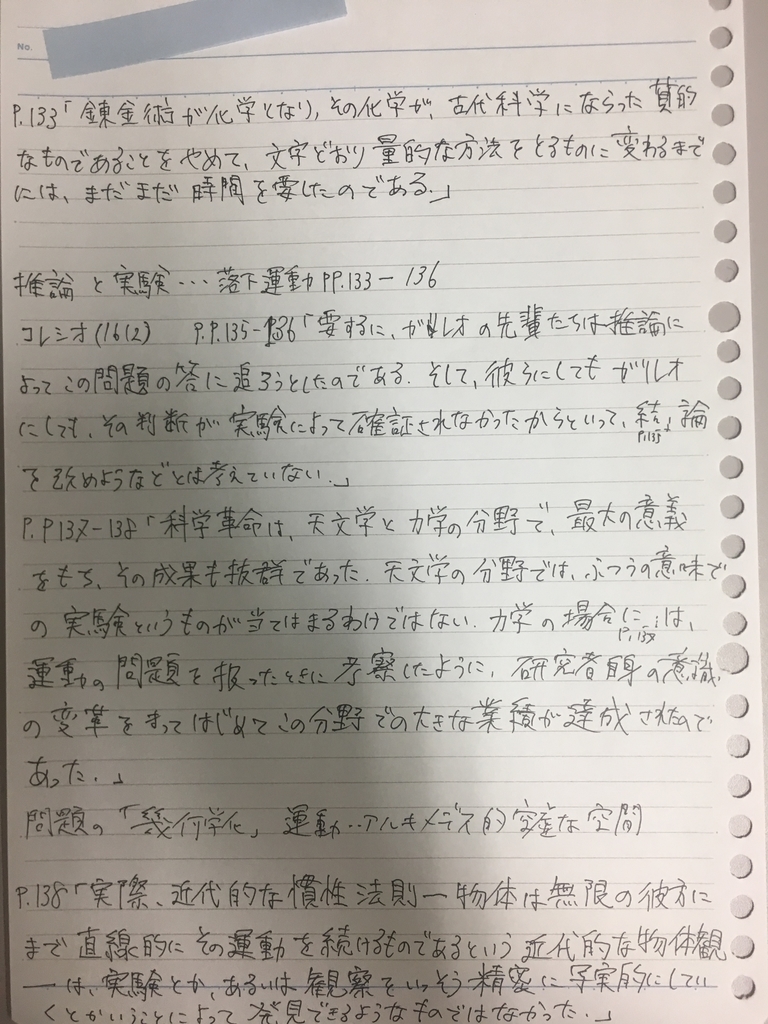 No.
P.133「錬金術が化学となり,その化学が、古代科学にならった質的
なものであることをやめて、文字どおり量的な方法をとるものに変わるまで
には、まだまだ時間を要したのである.」
推論と実験…落下運動 PP.133-136
コレシオ(1612) P.P.135-136「要するに、ガリレオの先輩たちは推論に
よってこの問題の答に迫ろうとしたのである. そして、彼らにしてもガリレオ
にしても、その判断が実験によって確証されなかったからといって、結論
P.135
を改めようなどとは考えていない.」
P.P137-138「科学革命は、天文学と力学の分野で、最大の意義
をもち、その成果も抜群であった. 天文学の分野では、ふつうの意味で
の実験というものが当てはまるわけではない. 力学の場合には、
P.137
運動の問題を扱ったときに考察したように、研究者自身の意識
の変革をまってはじめてこの分野での大きな業績が達成されたので
あった.」
問題の「幾何学化」 運動…アルキメデス的空虚な空間
P.138「実際、近代的な慣性法則―物体は無限の彼方に
まで直線的にその運動を続けるものであるという近代的な物体観
―は、実験とか、あるいは観察をいっそう精密に写実的にしてい
くとかいうことによって発見できるようなものではなかった.」